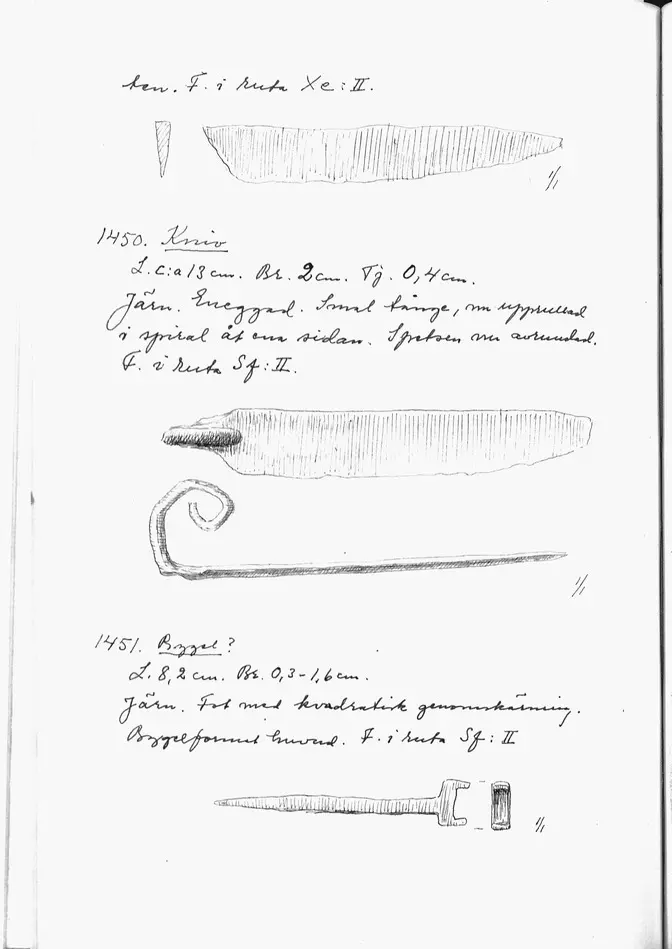 ten. F. i ruta Xe:II.
1/1
1450. Kniv
L. c:a 13 cm. Br. 2 cm. Tj. 0,4 cm.
Järn. Eneggad. Smal tånge, nu upprullad
i spiral åt ena sidan. Spetsen nu avrundad.
F. i ruta Sf:II.
1/1
1451. Bygel?
L. 8,2 cm. Br. 0,3-1,6 cm.
Järn. Fot med kvadratisk genomskärning.
Bygelformat huvud. F. i ruta Sf: II
1/1